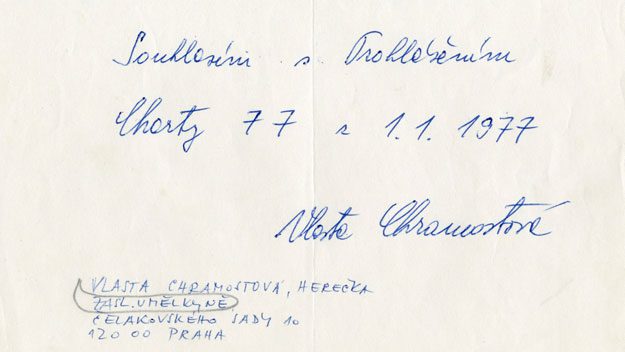 Souhlasím s Prohlášením
Charty 77 z 1.1. 1977
Vlasta Chramostová
VLASTA CHRAMOSTOVÁ, HEREČKA
ZASL. UMĚLKYNĚ
ČELAKOVSKÉHO SADY 10
120 00 PRAHA